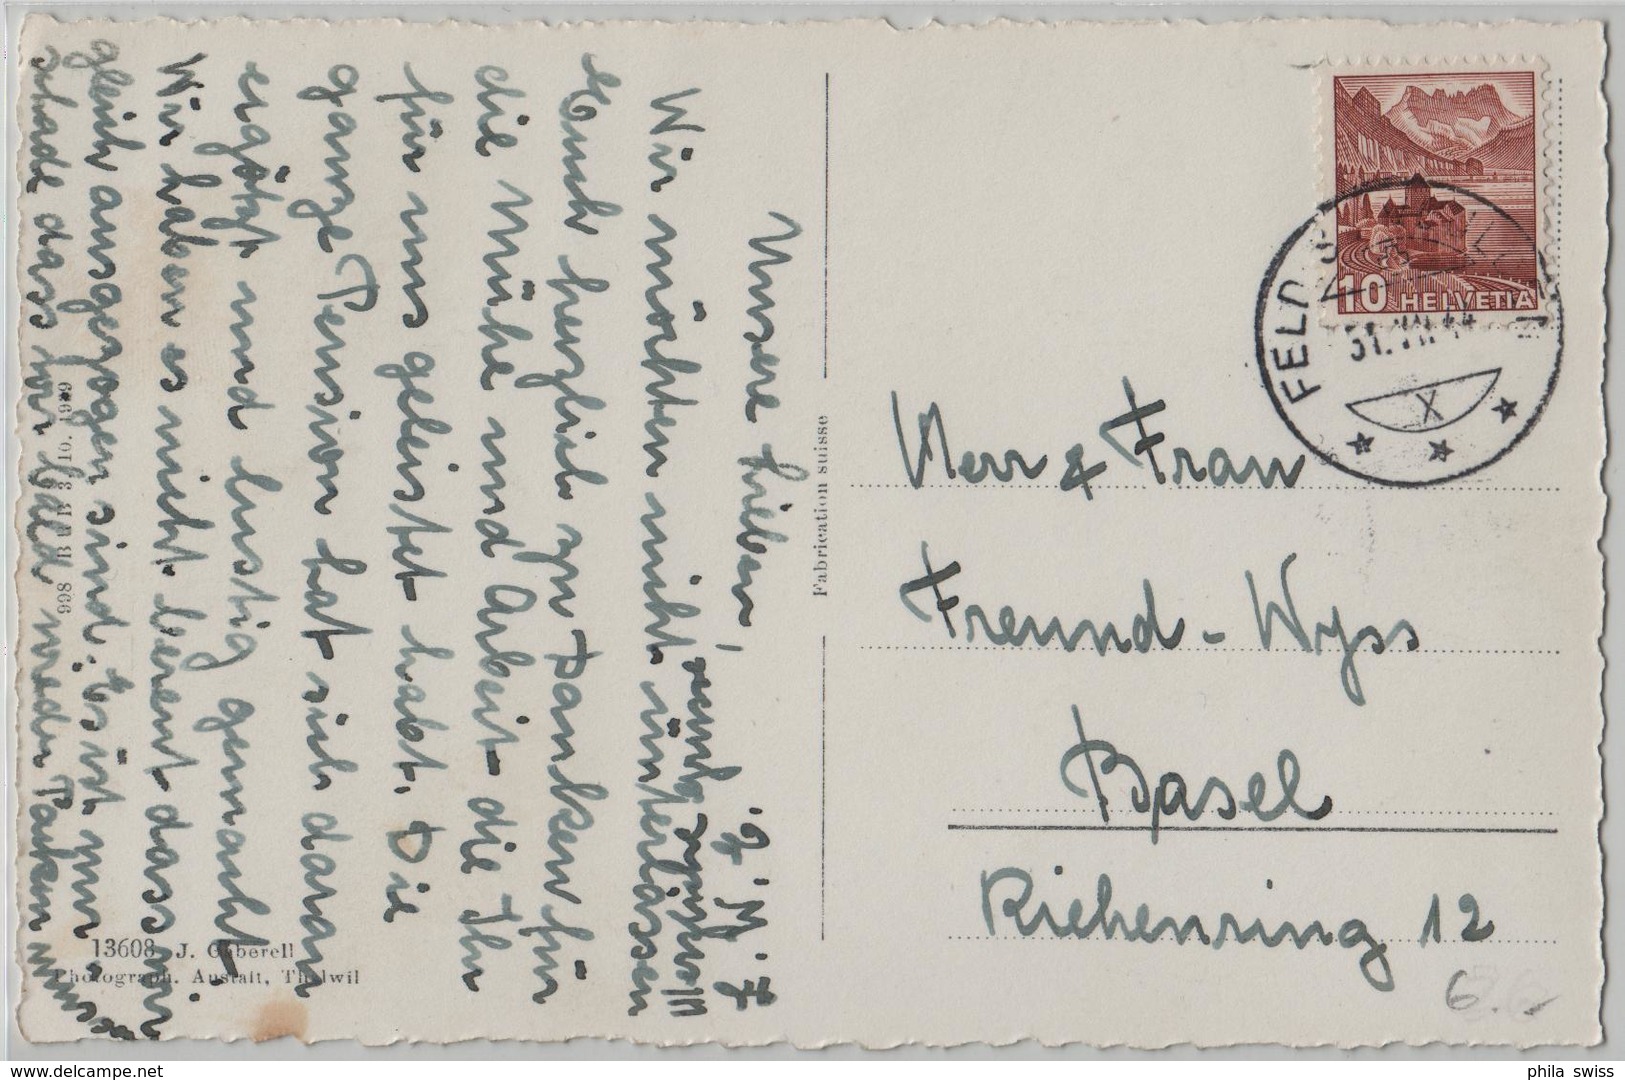 Unsere Lieben,
Wir möchten nicht unterlassen
Euch herzlich zu Danken für
die Mühe und Arbeit die Ihr
für uns geleistet habt. Die
ganze Pension hat sich daran
ergötzt und lustig gemacht
Wir haben es nicht bereut dass wir
gleich ausgezogen sind. Es ist nur
schade dass wir bald wieder Packen
Fabrication suisse
998 BRB 3. 10. 1939
13608 J. Gaberell
Photograph. Anstalt, Thalwil
10 HELVETIA
FELD
31.VII.44
X
Herr & Frau
Freund-Wyss
Basel
Riehenring 12
6.-
phila swiss